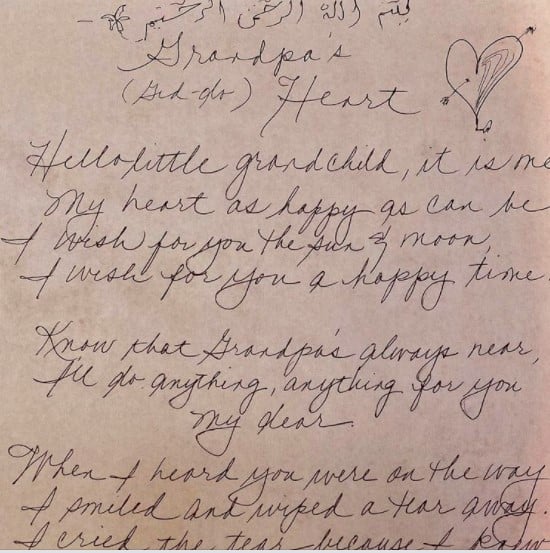 بسم الله الرحمن الرحيم
Grandpa's
(Gid-do) Heart
Hello little grandchild, it is me
My heart as happy as can be
I wish for you the sun & moon,
I wish for you a happy time.
Know that Grandpa's always near,
I'll do anything, anything for you
my dear.
When I heard you were on the way
I smiled and wiped a tear away.
I cried the tear because I knew